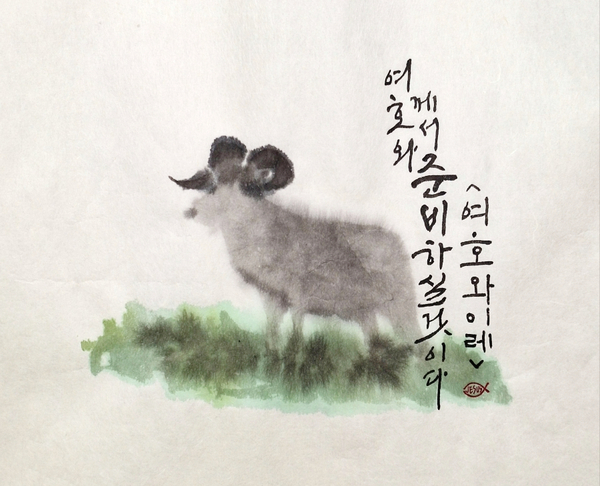 여호와께서
준비하실것이다
<여호와이레>
JESUS